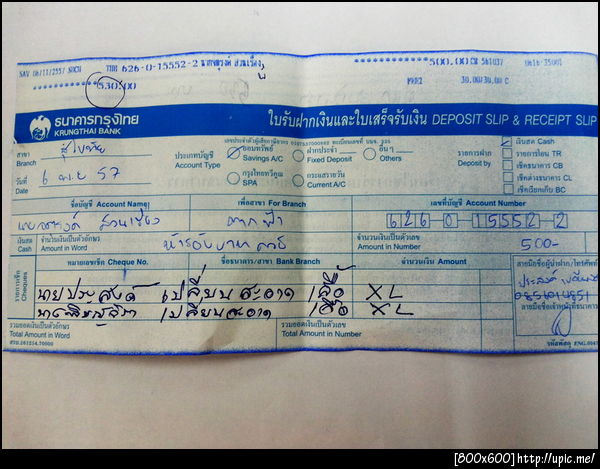 SAV 06/11/2557 THB 626-0-15552-2
**********500.00CR 561037 0616-35001
**********530.00 30.00/30.00 C
ธนาคารกรุงไทย
KRUNGTHAI BANK
ใบรับฝากเงินและใบเสร็จรับเงิน DEPOSIT SLIP & RECEIPT SLIP
สาขา
Branch
สุโขทัย
ประเภทบัญชี
Account Type
ออมทรัพย์
Savings A/C
ฝากประจำ
Fixed Deposit
อื่นๆ
Others
รายการฝาก
Deposit by
เงินสด Cash
รายการโอน TR
เช็คธนาคาร CB
เช็คต่างธนาคาร CL
เช็คเรียกเก็บ BC
วันที่
Date
6 พ.ย 57
กรุงไทยทวีคูณ
SPA
กระแสรายวัน
Current A/C
ชื่อบัญชี Account Name
เพื่อสาขา For Branch
เลขที่บัญชี Account Number
ตากฟ้า
626 0 15552 2
เงินสด
Cash
จำนวนเงินเป็นตัวอักษร
Amount in Word
ห้าร้อยบาทถ้วน
จำนวนเงินเป็นตัวเลข
Amount in Number
500-
รายการเช็ค
Cheques
หมายเลขเช็ค Cheque No.
ชื่อธนาคาร/สาขา Bank Branch
จำนวนเงิน Amount
นายประสงค์ เปลี่ยนสะอาด เสื้อ XL
เปลี่ยนสะอาด เสื้อ XL
รวมยอดเงินเป็นตัวอักษร
Total Amount in Word
รวมยอดเงินเป็นตัวเลข
Total Amount in Number
[800x600]http://upic.me/